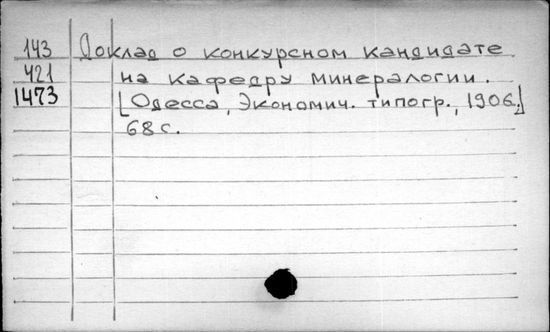 143 Доклад о конкурсном кандидате
421 на кафедру минералогии.
1473 [Одесса, Экономич. типогр., 1906.]
68 с.